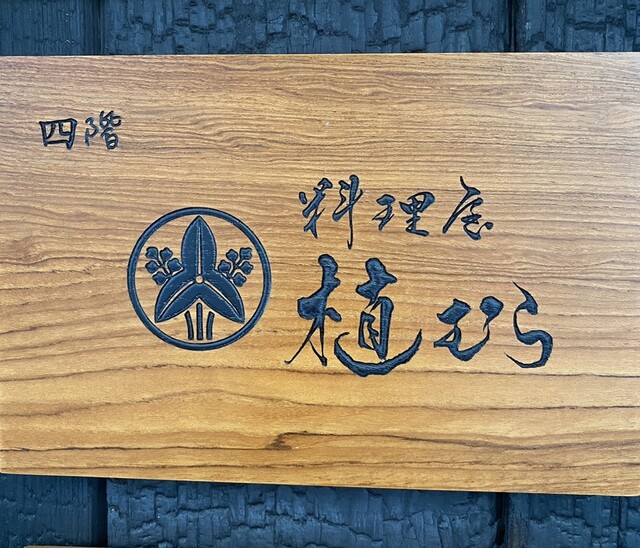 四階
料理屋
植むら